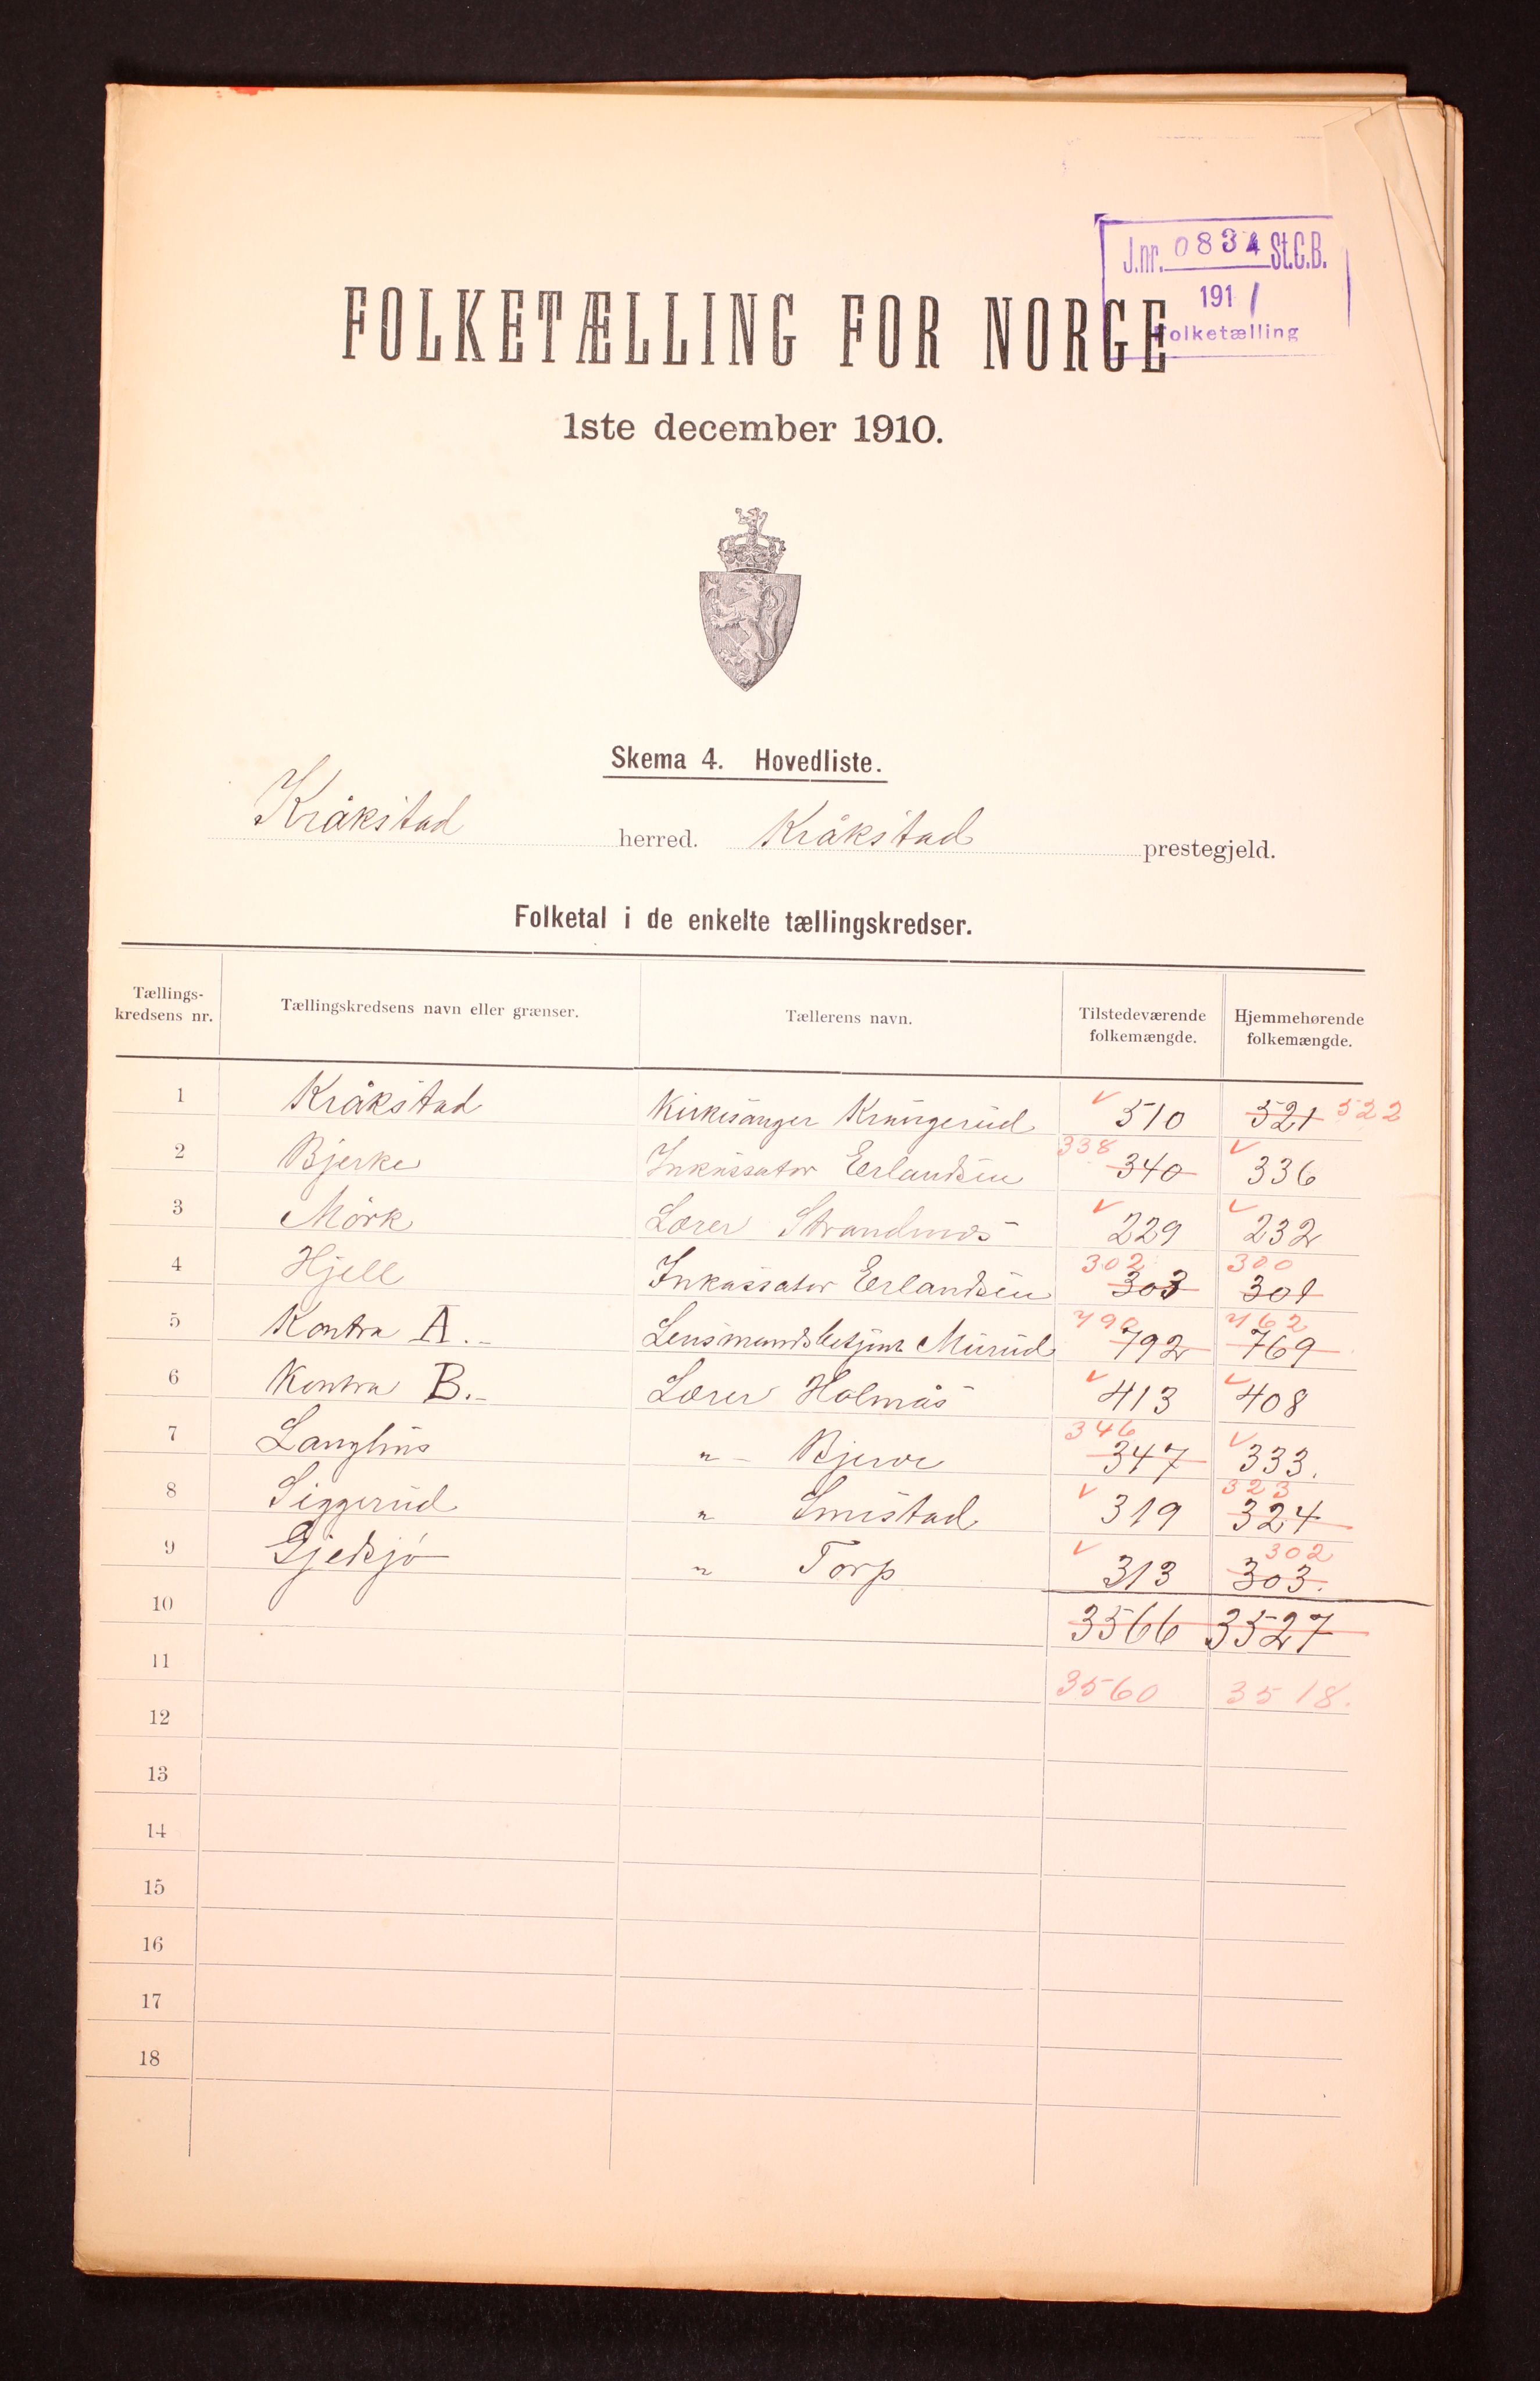 J.nr. 0834 St.C.B.
1911
Folketælling
FOLKETÆLLING FOR NORGE
1ste december 1910.
Skema 4. Hovedliste.
Kråkstad herred. Kråkstad prestegjeld.
Folketal i de enkelte tællingskredser.
Tællings-kredsens nr. Tællingskredsens navn eller grænser. Tællerens navn. Tilstedeværende folkemængde. Hjemmehørende folkemængde.
1 Kråkstad Kirkesanger Krungerud 510 521 522
2 Bjerke Inkassator Erlandsen 338 340 336
3 Mörk Lærer Strandnæs 229 232
4 Hjell Inkassator Erlandsen 302 303 300 301
5 Kontra A. Lensmandsbetjent Murud 790 792 762 769
6 Kontra B. Lærer Holmås 413 408
7 Langhus " Bjerve 346 347 333.
8 Siggerud " Smestad 319 323 324
9 Gjedsjö " Torp 313 302 303.
10 3566 3527
11 3560 3518.
12
13
14
15
16
17
18